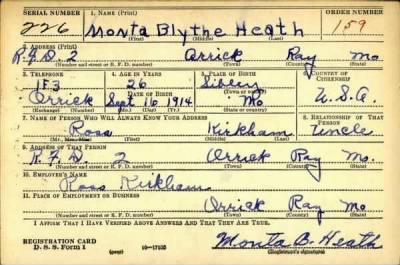 SERIAL NUMBER 1. NAME (Print) ORDER NUMBER
226 Monta Blythe Heath 159
(First) (Middle) (Last)
2. ADDRESS (Print)
R.F.D. 2 Orrick Ray Mo
(Number and street or R. F. D. number) (Town) (County) (State)
3. TELEPHONE 4. AGE IN YEARS 5. PLACE OF BIRTH 6. COUNTRY OF CITIZENSHIP
1F3 26 Sibley
DATE OF BIRTH
Orrick Sept 16 1914 Mo U.S.A.
(Exchange) (Number) (Mo.) (Day) (Yr.) (State or country)
7. NAME OF PERSON WHO WILL ALWAYS KNOW YOUR ADDRESS 8. RELATIONSHIP OF THAT PERSON
Ross Kirkham Uncle
(Mr., Mrs., Miss) (First) (Middle) (Last)
9. ADDRESS OF THAT PERSON
R.F.D. 2 Orrick Ray Mo.
(Number and street or R. F. D. number) (Town) (County) (State)
10. EMPLOYER'S NAME
Ross Kirkham
11. PLACE OF EMPLOYMENT OR BUSINESS
Orrick Ray Mo
(Number and street or R. F. D. number) (Town) (County) (State)
I AFFIRM THAT I HAVE VERIFIED ABOVE ANSWERS AND THAT THEY ARE TRUE.
REGISTRATION CARD
D. S. S. Form 1 (over) Monta B. Heath
(Registrant's signature)